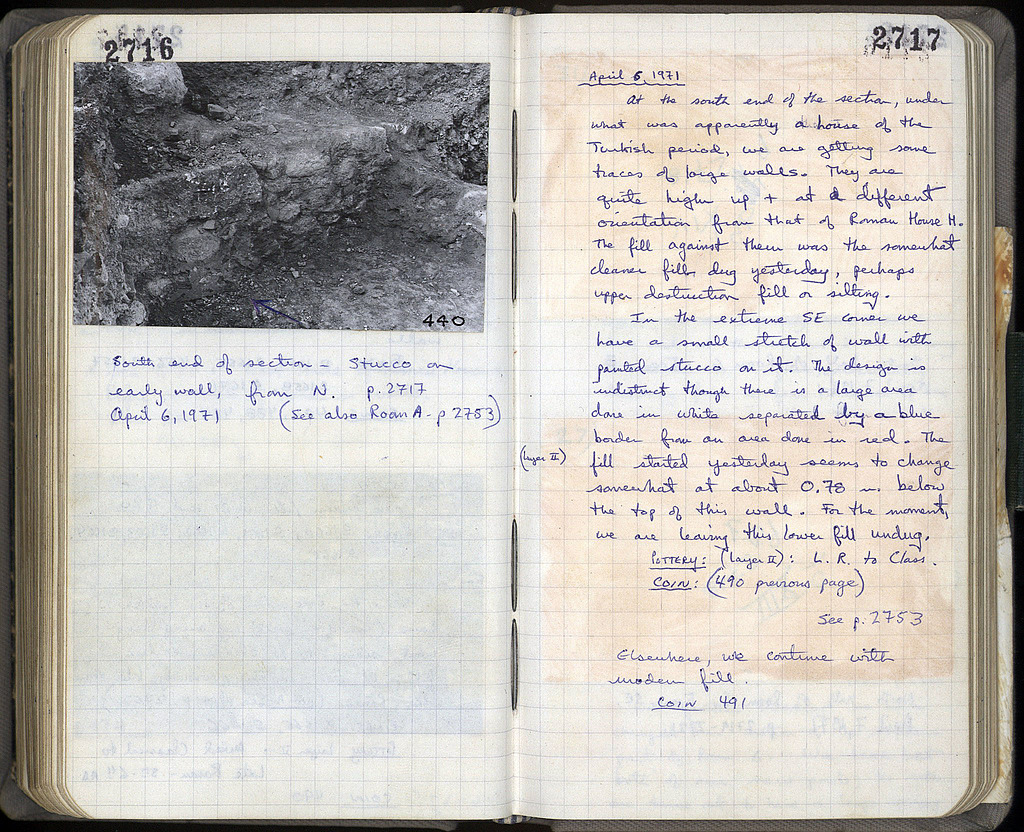 2716
440
South end of section - Stucco on
early wall, from N. p. 2717
April 6, 1971 (See also Room A - p 2753)
2717
April 6, 1971
At the south end of the section, under
what was apparently a house of the
Turkish period, we are getting some
traces of large walls. They are
quite high up + at a different
orientation from that of Roman House H.
The fill against them was the somewhat
cleaner fill dug yesterday, perhaps
upper destruction fill or silting.
In the extreme SE corner we
have a small stretch of wall with
painted stucco on it. The design is
indistinct though there is a large area
done in white separated by a blue
border from an area done in red. The
(Layer II) fill started yesterday seems to change
somewhat at about 0.78 m. below
the top of this wall. For the moment,
we are leaving this lower fill undug.
POTTERY: (Layer II): L. R. to Class.
COIN: (490 previous page)
See p. 2753
Elsewhere, we continue with
modern fill.
COIN 491